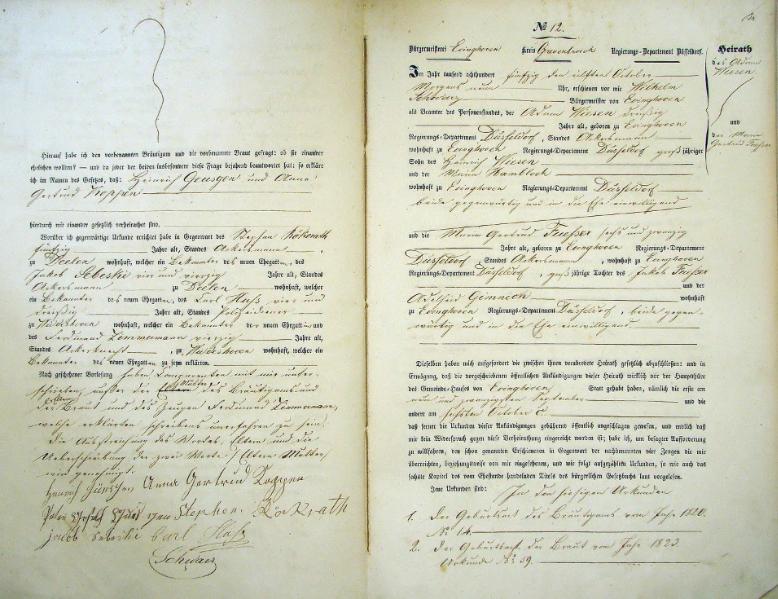 Hierauf habe ich den vorbenannten Bräutigam und die vorbenannte Braut gefragt: ob sie einander
ehelichen wollten? — und da jeder der beiden insbesondere diese Frage bejahend beantwortet hat: so erkläre
ich im Namen des Gesetzes, daß: Heinrich und Anna
Gertrud
hierdurch mit einander gesetzlich verheirathet sind.
Worüber ich gegenwärtige Urkunde errichtet habe in Gegenwart des Stephan Rökrath
fünfzig Jahre alt, Standes Ackersmann
zu Deelen wohnhaft, welcher ein Bekannter des neuen Ehegatten, des
Jakob vier und vierzig Jahre alt, Standes
Ackersmann zu Deelen wohnhaft, welcher
ein Bekannter des neuen Ehegatten, des Carl vier und
dreißig Jahre alt, Standes Polizeidiener
zu wohnhaft, welcher ein Bekannter der neuen Ehegatten und
des Ferdinand Zimmermann vierzig Jahre alt,
Standes Ackerknecht, zu wohnhaft, welcher ein
Bekannter des neuen Ehegatten zu sein erklärten.
Nach geschehener Vorlesung haben Comparenten mit mir unter-
schrieben, außer des Bräutigams und
der Braut und des Zeugen Ferdinand Zimmermann,
welche erklärten schreibens unerfahren zu sein.
Die Ausstreichung des Wortes Eltern und die
Ueberschreibung der zwei Worte Mutter
wird genehmigt.
Anna Gertrud
Stephan Rökrath
Jacob Carl
№ 12.
Bürgermeisterei Evinghoven Kreis Grevenbroich Regierungs-Departement Düsseldorf.
Im Jahr tausend achthundert fünfzig den eilften October
Morgens neun Uhr, erschienen vor mir Wilhelm
Bürgermeister von Evinghoven
als Beamten des Personenstandes, der Adam Wiesen dreißig
Jahre alt, geboren zu Evinghoven
Regierungs-Departement Düsseldorf, Standes Ackersmann
wohnhaft zu Evinghoven Regierungs-Departement Düsseldorf großjähriger
Sohn des Heinrich Wiesen
und der Maria
wohnhaft zu Evinghoven Regierungs-Departement Düsseldorf
beide gegenwärtig und in die Ehe einwilligend
und die Maria Gertrud sechs und zwanzig
Jahre alt, geboren zu Evinghoven Regierungs-Departement
Düsseldorf, Standes Ackersmann, wohnhaft zu Evinghoven
Regierungs-Departement Düsseldorf, großjährige Tochter des Jakob
und der
wohnhaft
zu Evinghoven Regierungs-Departement Düsseldorf, beide gegen-
wärtig und in die Ehe einwilligend
Dieselben haben mich aufgefordert die zwischen ihnen verabredete Heirath gesetzlich abzuschließen: und in
Erwägung, daß die vorgeschriebenen öffentlichen Ankündigungen dieser Heirath wirklich vor der Hauptthüre
des Gemeinde-Hauses von Evinghoven Statt gehabt haben, nämlich die erste am
neun und zwanzigsten September und die
andere am sechsten October
daß ferner die Urkunden dieser Ankündigungen gebührend öffentlich angeschlagen gewesen, und endlich daß
mir kein Widerspruch gegen diese Verheirathung eingereicht worden ist; habe ich, um besagter Aufforderung
zu willfahren, den schon genannten Erschienenen in Gegenwart der nachbenannten vier Zeugen die mir
überreichten, beziehungsweise von mir eingesehenen, und wie folgt aufgezählten Urkunden, so wie auch das
sechste Kapitel des vom Ehestande handelnden Titels des bürgerlichen Gesetzbuchs laut vorgelesen.
Jene Urkunden sind: In den hiesigen Urkunden
1. Der Geburtsact des Bräutigams vom Jahr 1820.
№ 14.
2. Der Geburtsact der Braut vom Jahr 1823.
Urkunde № 59.
Heirath
des Adam
Wiesen
und
der Maria
Gertrud